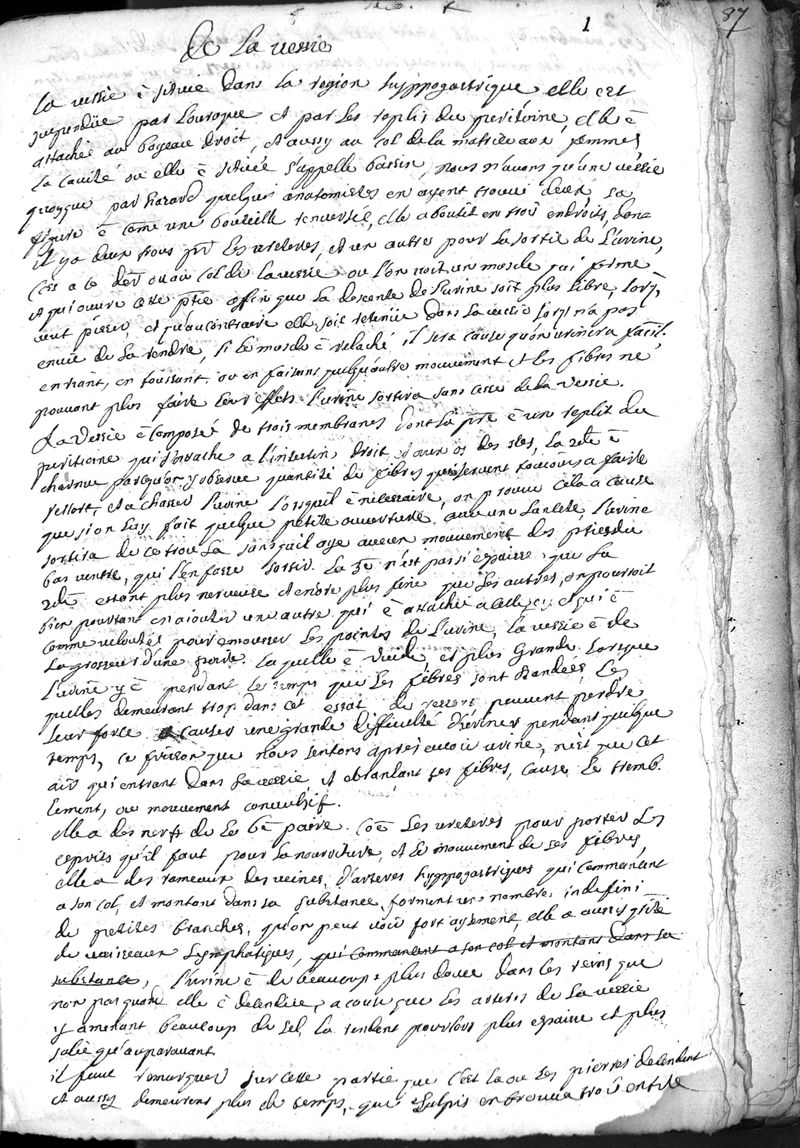 1
87
De La vessie
La vessie ē située dans la region hyppogastrique elle est
suspendüe par Louraque et par les replis du peritoinne, elle ē
attachée au boyeau droit, et aussy au col de la matrice aux femmes
la cavité ou elle ē située s'appelle bassin, nous n'avons qu'une vessie
quoyque par hazard quelques anatomistes en ayent trouvé deux sa
figure ē cōme une bouteille renversée, elle aboutit en trois endroits, donc
il y a deux trous pr̄ les ureteres, et un autre pour la sortie de L'urine,
c'est a le der̄ ou au col de la vessie ou l'on voit un muscle qui ferme
et qui ouvre cette ptie affin que la descente de l'urine soit plus libre, lorsq
veut pisser, et qu'au contraire elle soit retenüe dans la vessie lorsq n'a pas
envie de la rendre, si le muscle ē relaché il sera cause qu'on urinera facil.
en riant, en toussant, ou en faisant quelqu'autre mouvement et les fibres ne
pouvant plus faire leur effets l'urine sortira sans cesse de la vessie.
La vessie ē composée de trois membranes dont la pre ē un replit du
peritoine qui s'attache a l'intestin droit, et aux os des iles, la 2de ē
charnue parcequ'on y observe quantité de fibres qui servent toujours a faire
ressort, et a chasser l'urine lorsquil ē necessaire, on prouve cela a cause
que si on luy fait quelque petite ouverture avec une lancete, l'urine
sortira de ce trou la sans quil aye aucun mouvement des pties du
bas ventre, qui l'en fasse sortir. La 3e n'est pas si epaisse que la
2de estant plus nerveuse et encore plus fine que les autres, on pourroit
bien pourtant en ajouter une autre qui ē attachée a celle cy et qui ē
comme veloutée pour emousser les pointes de l'urine, la vessie ē de
la grosseur d'une poire la quelle ē vuide, et plus grande lorsque
l'urine y ē pendant le temps que les fibres sont bandées, les
quelles demeurant trop dans cet estat de ressort peuvent perdre
leur force et causer une grande difficulté d'uriner pendant quelque
temps, ce frisson que nous sentons apres avoir uriné, n'est que cet
air qui entrant dans la vessie et ebranlant ses fibres, cause le tremb.
lement, ou mouvement convulsif.
elle a des nerfs de la 6e paire cōe les ureteres pour porter les
esprits qu'il faut pour la nourriture, et le mouvement de ses fibres,
elle a des rameaux des veines, d'arteres hyppogastriques qui commencent
a son col, et montant dans sa substance, forment un nombre indefini
de petites branches, qu'on peut voir fort aysement, elle a aussy qtité
de vaisseaux Lymphatiques, qui commencent a son col et montant dans sa
substance, l'urine ē de beaucoup plus douce dans les reins que
non pas quand elle ē descendüe, a cause que les arteres de la vessie
y amenant beaucoup de sel, la rendent pour lors plus epaisse et plus
salée qu'auparavant
il faut remarquer sur cette partie que c'est la ou les pierres descendent
et aussy demeurent plus de temps, que en trouva trois